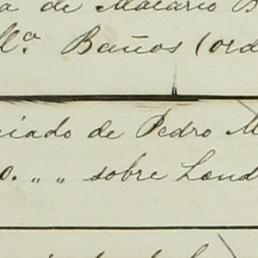 a de Macario B
ll.ª Baños (ord
ciado de Pedro M
o. „ „ sobre Lond